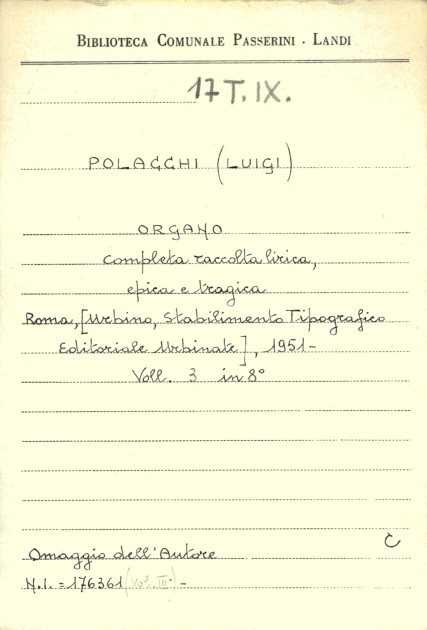 BIBLIOTECA COMUNALE PASSERINI - LANDI
17 T. IX.
POLACCHI (LUIGI)
ORGANO
Completa raccolta lirica,
epica e tragica
Roma, [Urbino, Stabilimento Tipografico
Editoriale Urbinate], 1951-
Voll. 3 in 8°
C
Omaggio dell'Autore
N.I. = 176361 (Vol. III°) -